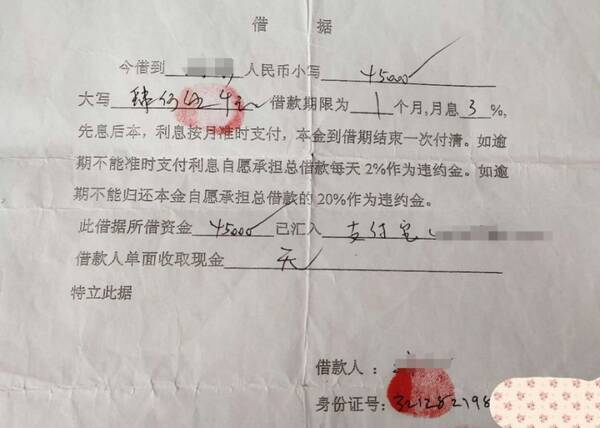 借 据
今借到 人民币小写 45000
大写 肆 伍千元 借款期限为 1 个月,月息 3 %,
先息后本，利息按月准时支付，本金到借期结束一次付清。如逾
期不能准时支付利息自愿承担总借款每天 2%作为违约金。如逾
期不能归还本金自愿承担总借款的 20%作为违约金。
此借据所借资金 45000 已汇入 支付宝
借款人单面收取现金 无
特立此据
借款人：
身份证号: 321282198